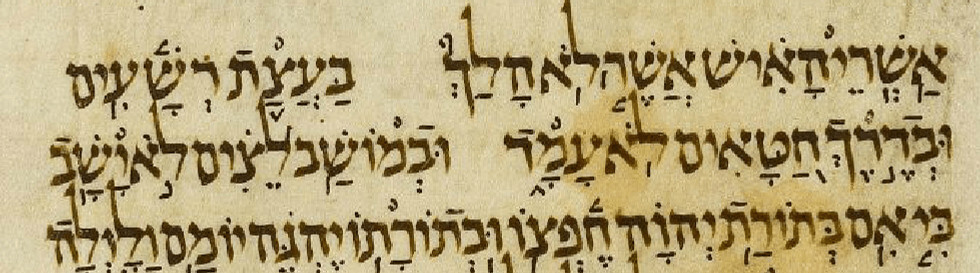 אַשְׁרֵי הָאִישׁ אֲשֶׁר לֹא הָלַךְ בַּעֲצַת רְשָׁעִים
וּבְדֶרֶךְ חַטָּאִים לֹא עָמָד וּבְמוֹשַׁב לֵצִים לֹא יָשָׁב
כִּי אִם בְּתוֹרַת יְהוָה חֶפְצוֹ וּבְתוֹרָתוֹ יֶהְגֶּה יוֹמָם וָלָיְלָה